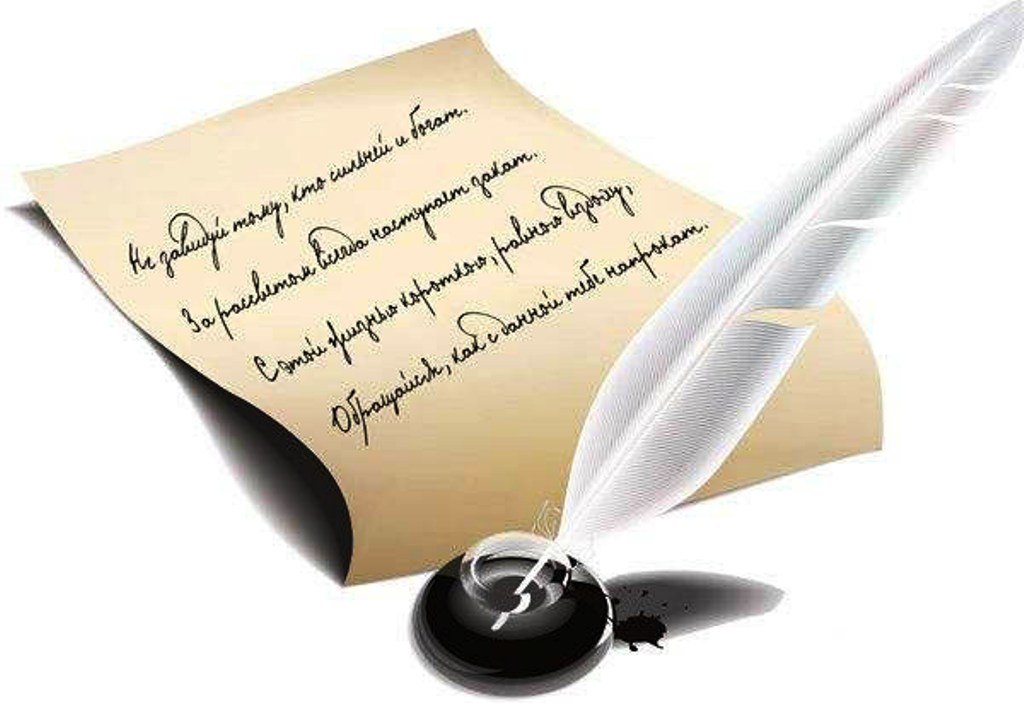 Не завидуй тому, кто сильней и богат.
За рассветом всегда наступает закат.
С этой жизнью короткою, равною вздоху,
Обращайся, как с данной тебе напрокат.